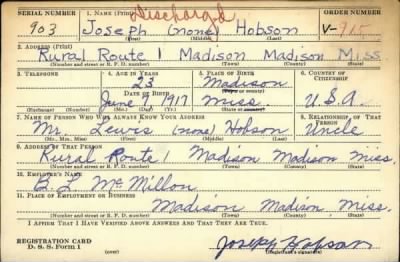 SERIAL NUMBER 1. NAME (Print) Discharged ORDER NUMBER
903 Joseph (none) Hobson V-915
(First) (Middle) (Last)
2. ADDRESS (Print)
Rural Route 1 Madison Madison Miss.
(Number and street or R. F. D. number) (Town) (County) (State)
3. TELEPHONE 4. AGE IN YEARS 5. PLACE OF BIRTH 6. COUNTRY OF CITIZENSHIP
23 Madison
DATE OF BIRTH (Town or county)
June 1917 Miss. U.S.A.
(Exchange) (Number) (Mo.) (Day) (Yr.) (State or country)
7. NAME OF PERSON WHO WILL ALWAYS KNOW YOUR ADDRESS 8. RELATIONSHIP OF THAT PERSON
Mr. Lewis (none) Hobson Uncle
(Mr., Mrs., Miss) (First) (Middle) (Last)
9. ADDRESS OF THAT PERSON
Rural Route 1 Madison Madison Miss.
(Number and street or R. F. D. number) (Town) (County) (State)
10. EMPLOYER'S NAME
B. L. McMillon
11. PLACE OF EMPLOYMENT OR BUSINESS
Madison Madison Miss.
(Number and street or R. F. D. number) (Town) (County) (State)
I AFFIRM THAT I HAVE VERIFIED ABOVE ANSWERS AND THAT THEY ARE TRUE.
REGISTRATION CARD
D. S. S. Form 1 (over) Joseph Hobson
(Registrant's signature)